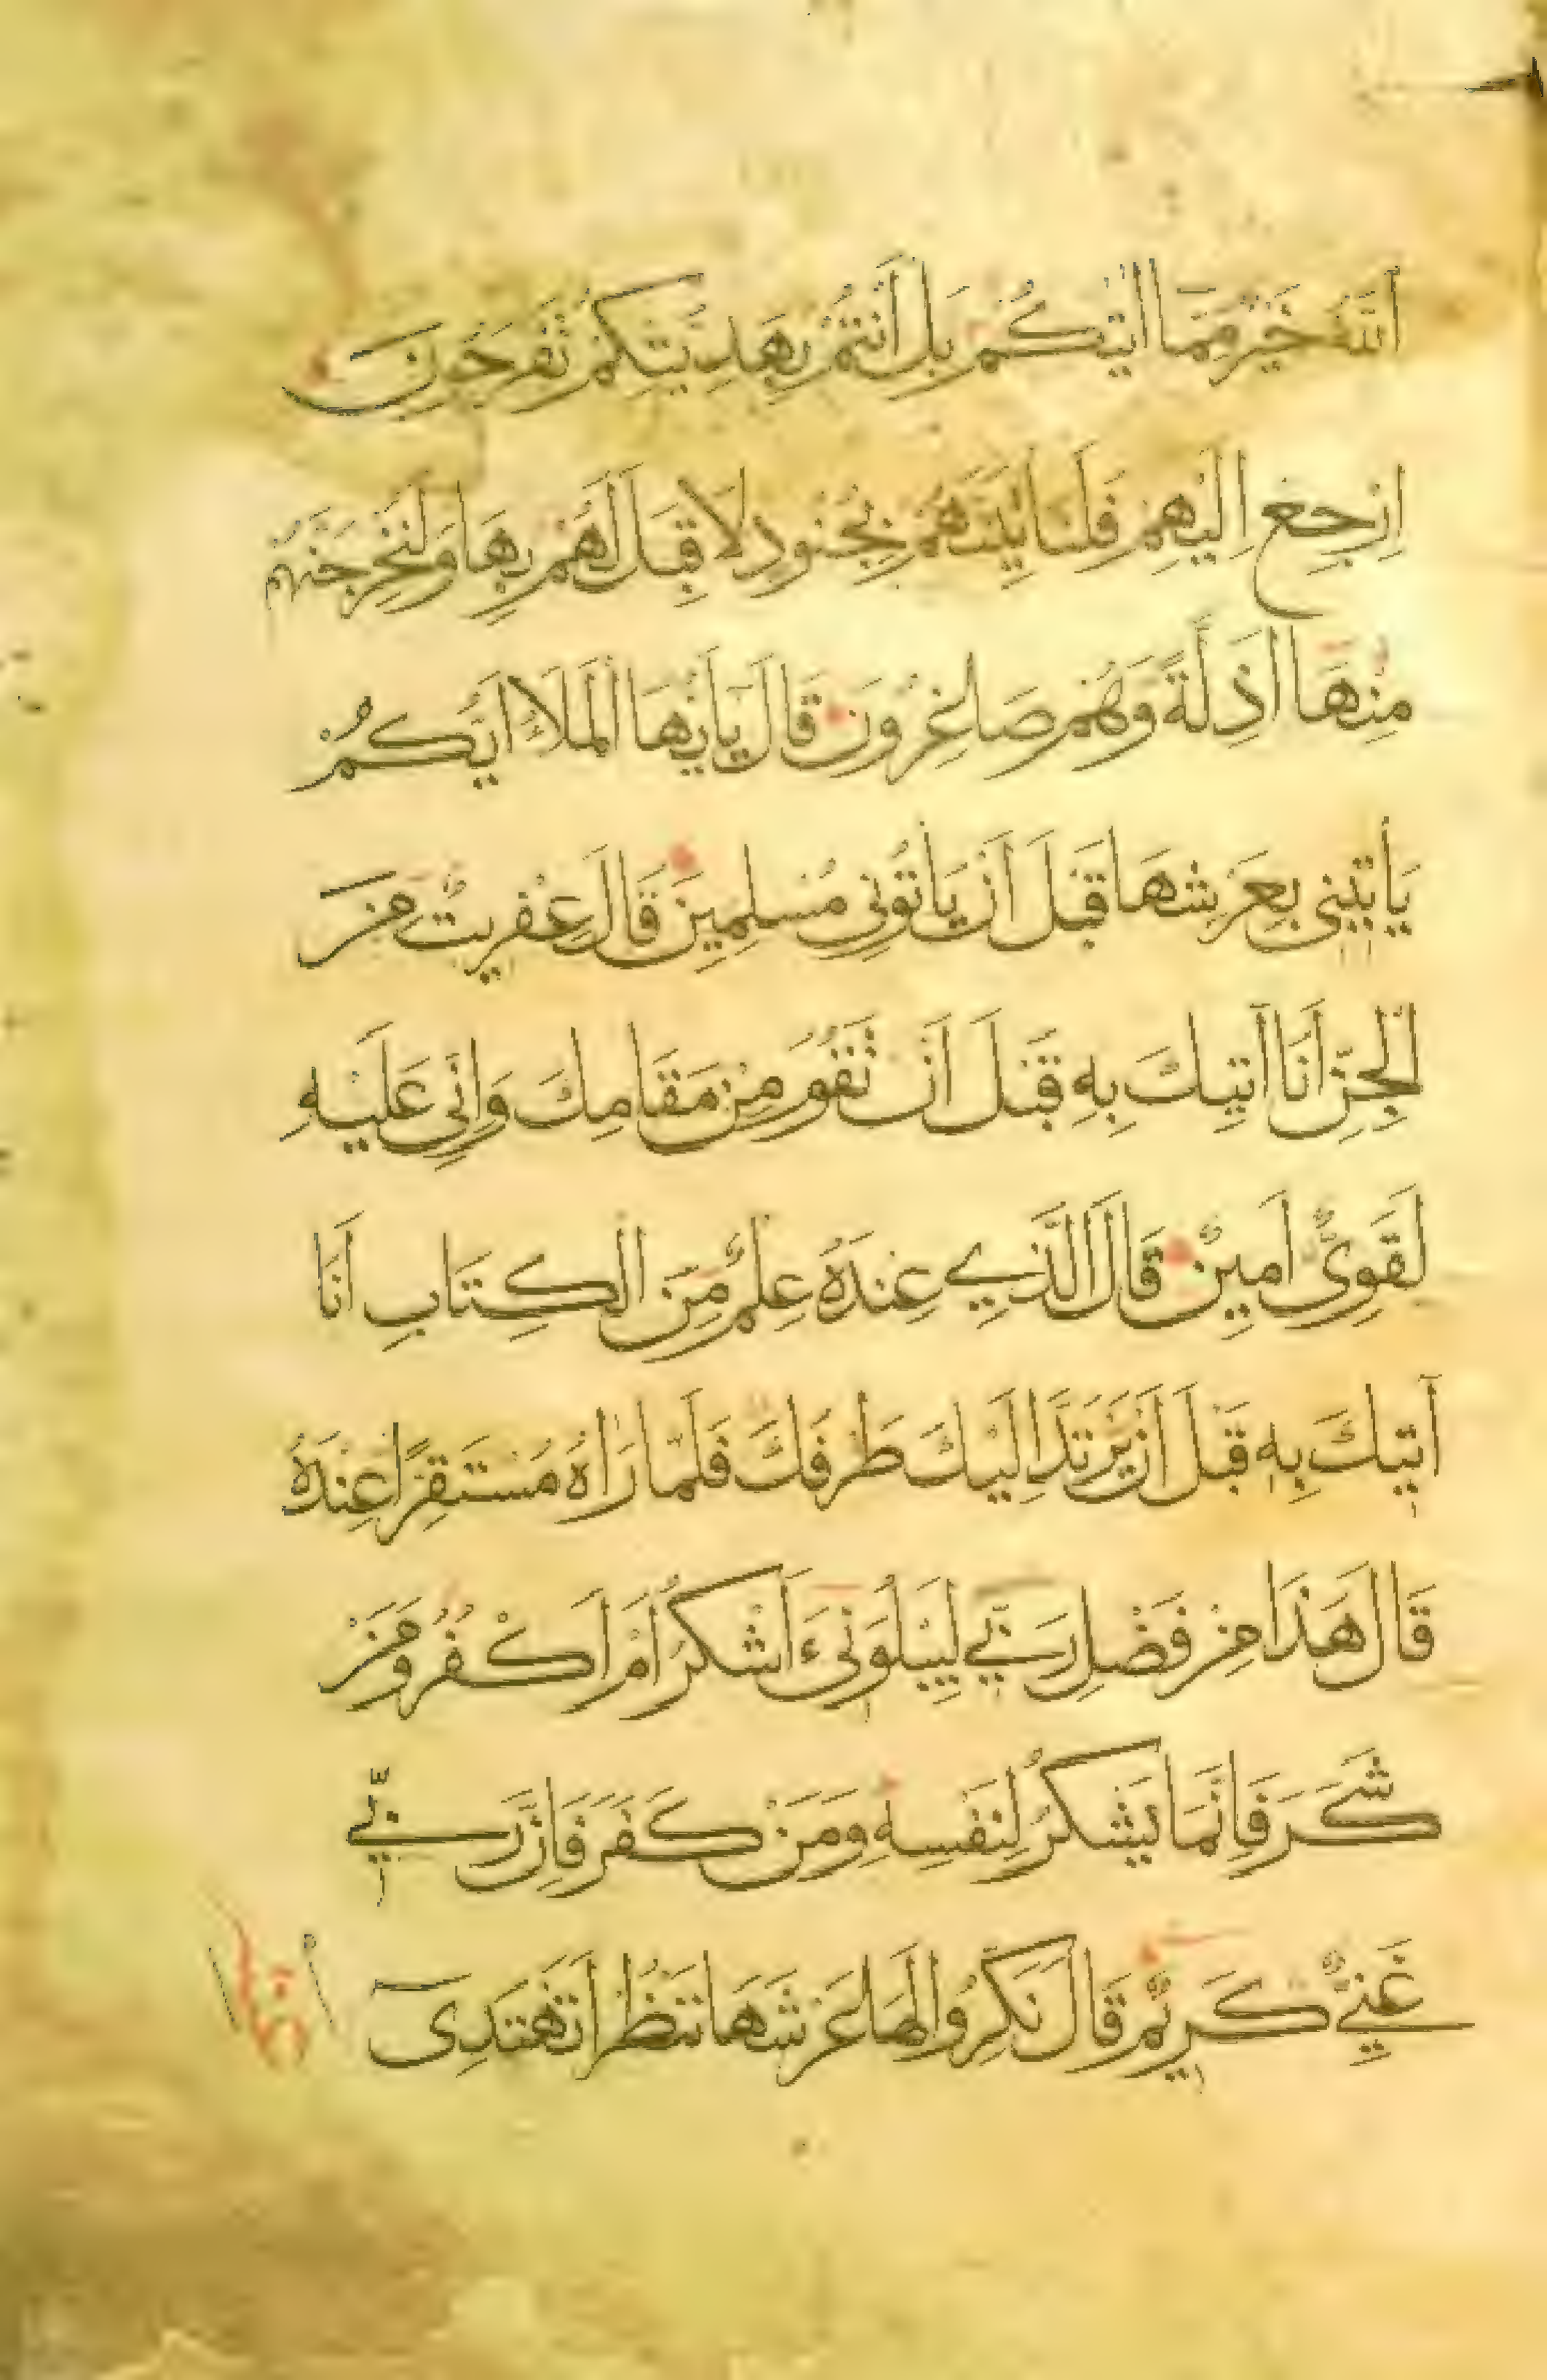 اَللّٰهُ خَيْرٌ مِمَّا اٰتٰيكُمْ بَلْ اَنْتُمْ بِهَدِيَّتِكُمْ تَفْرَحُونَ
اِرْجِعْ اِلَيْهِمْ فَلَنَأْتِيَنَّهُمْ بِجُنُودٍ لَا قِبَلَ لَهُمْ بِهَا وَلَنُخْرِجَنَّهُمْ
مِنْهَا اَذِلَّةً وَهُمْ صَاغِرُونَ قَالَ يَا اَيُّهَا الْمَلَأُ اَيُّكُمْ
يَأْتِينِي بِعَرْشِهَا قَبْلَ اَنْ يَأْتُونِي مُسْلِمِينَ قَالَ عِفْرِيتٌ مِنَ
الْجِنِّ اَنَا اٰتِيكَ بِهِ قَبْلَ اَنْ تَقُومَ مِنْ مَقَامِكَ وَاِنِّي عَلَيْهِ
لَقَوِيٌّ اَمِينٌ قَالَ الَّذِي عِنْدَهُ عِلْمٌ مِنَ الْكِتَابِ اَنَا
اٰتِيكَ بِهِ قَبْلَ اَنْ يَرْتَدَّ اِلَيْكَ طَرْفُكَ فَلَمَّا رَاٰهُ مُسْتَقِرًّا عِنْدَهُ
قَالَ هَذَا مِنْ فَضْلِ رَبِّي لِيَبْلُوَنِي ءَاَشْكُرُ اَمْ اَكْفُرُ وَمَنْ
شَكَرَ فَاِنَّمَا يَشْكُرُ لِنَفْسِهِ وَمَنْ كَفَرَ فَاِنَّ رَبِّي
غَنِيٌّ كَرِيمٌ قَالَ نَكِّرُوا لَهَا عَرْشَهَا نَنْظُرْ اَتَهْتَدِي